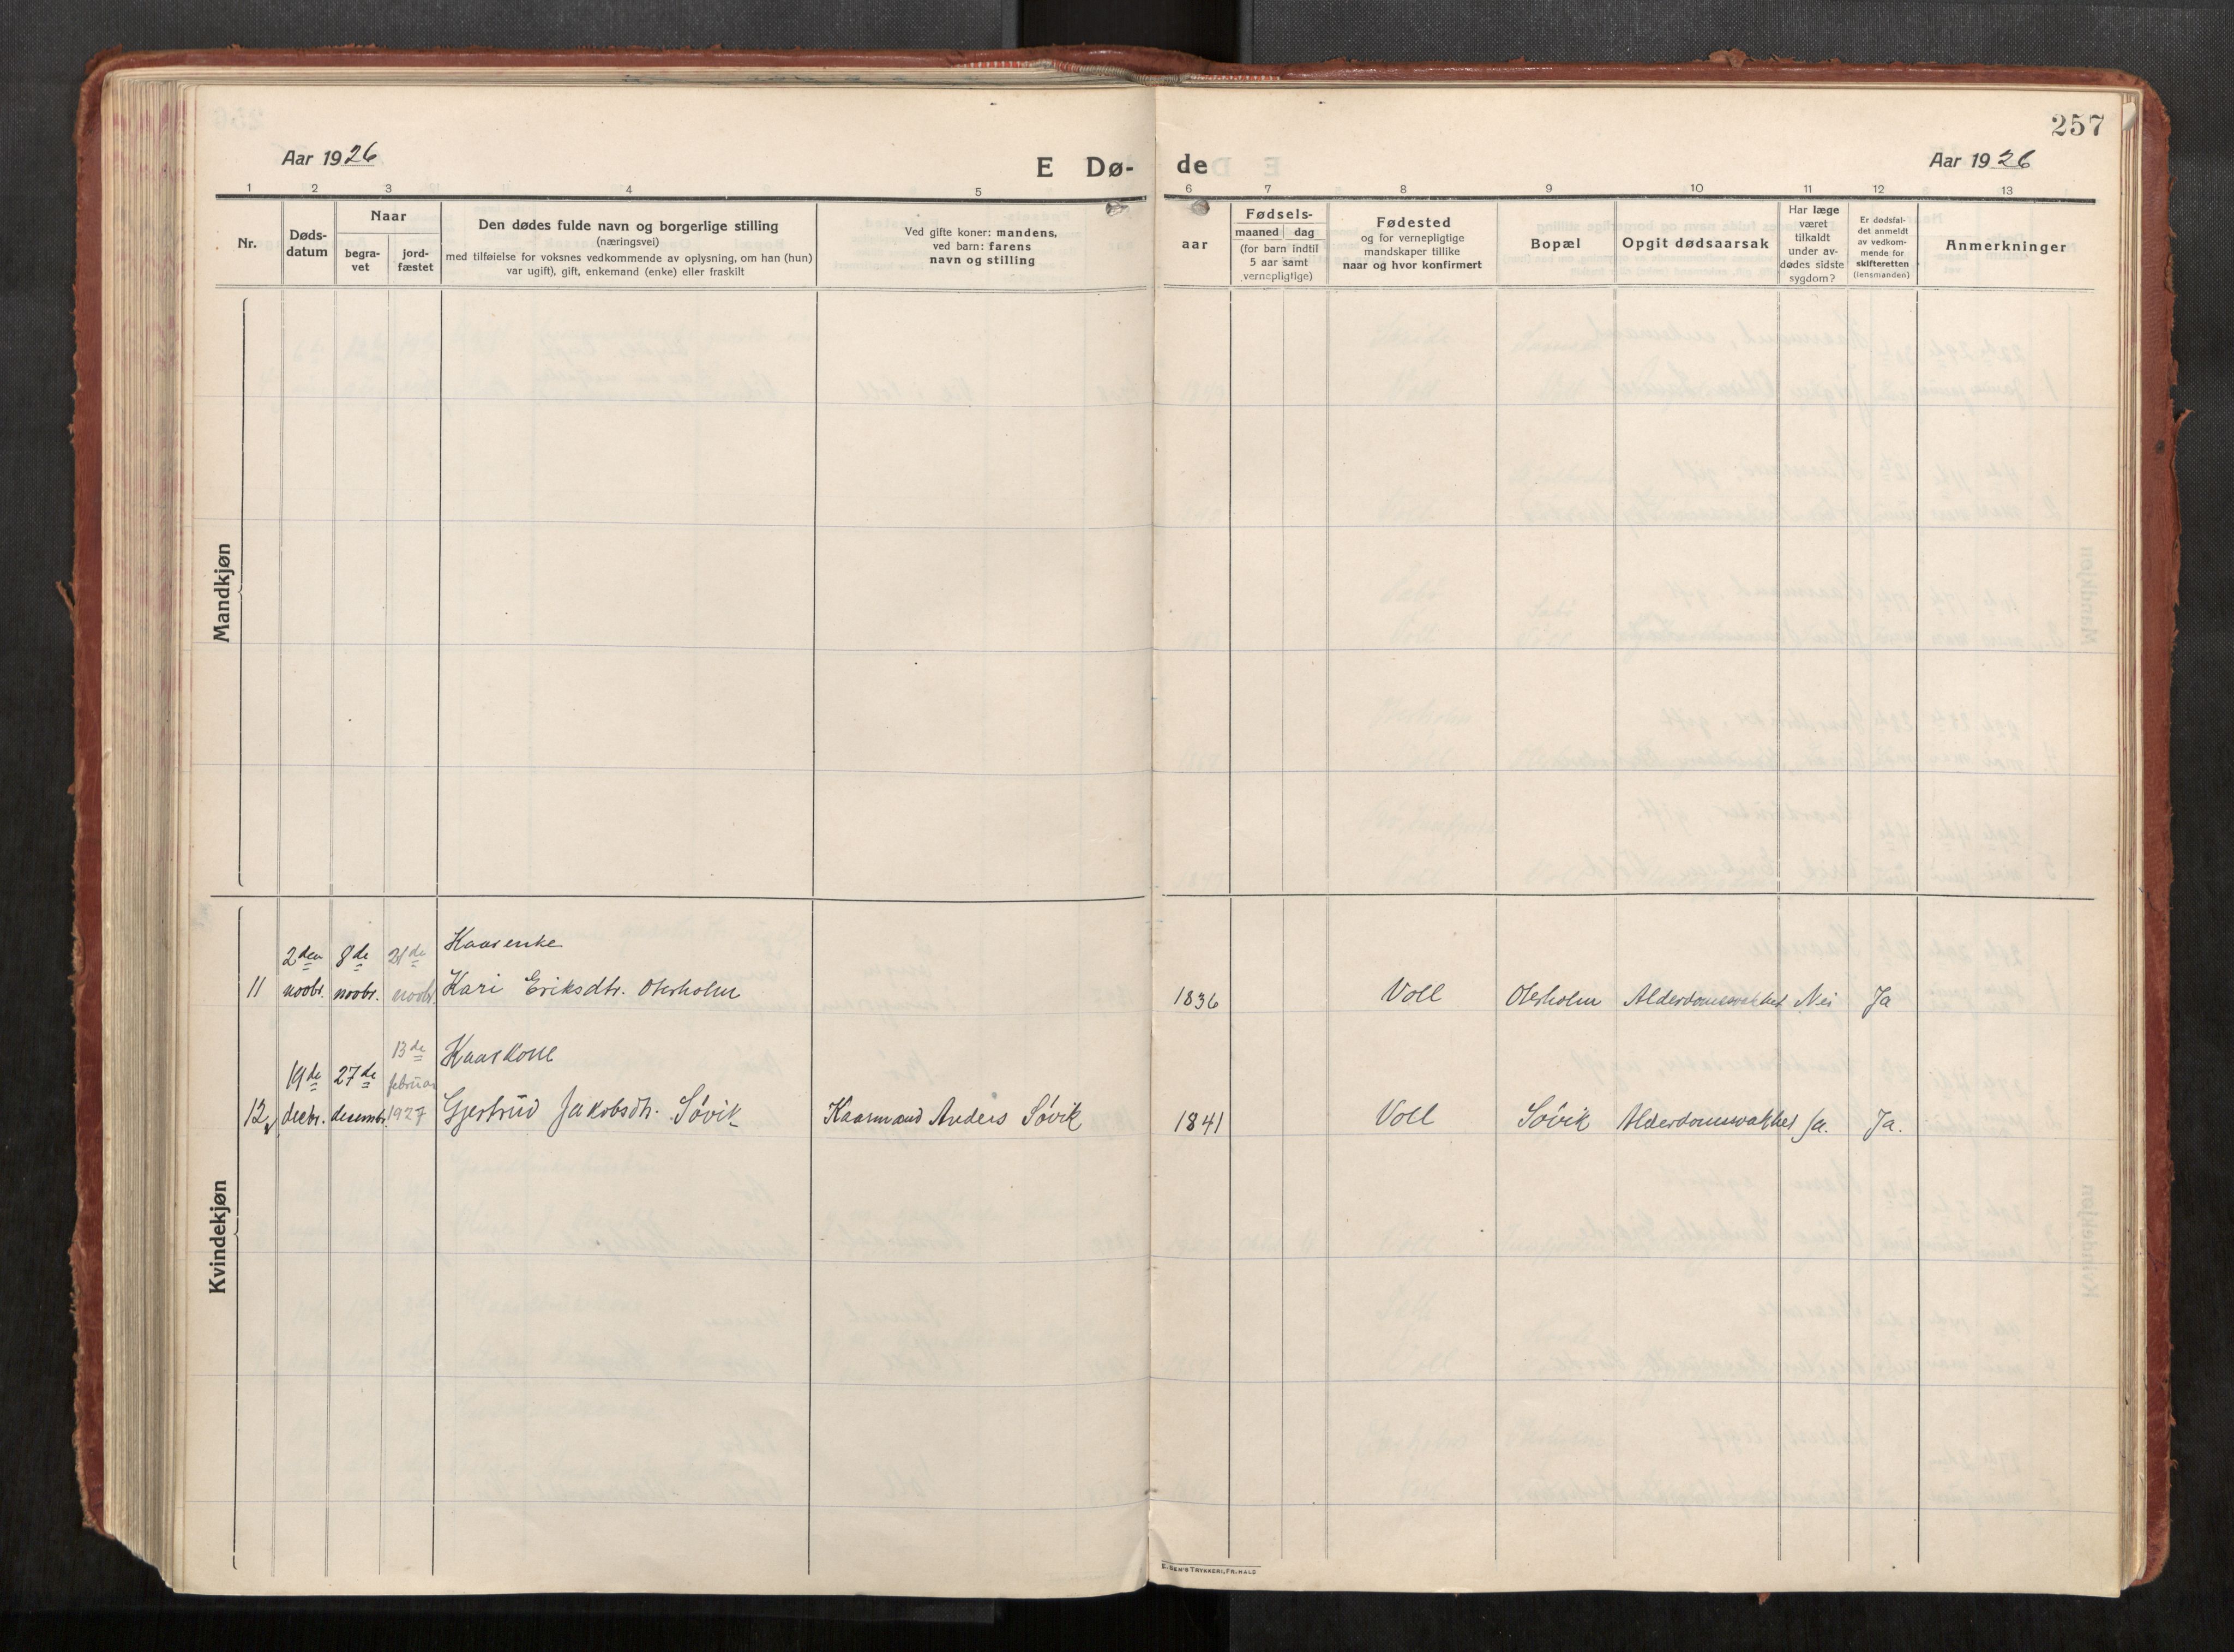 257
Aar 1926
E Dø-
de
Aar 1926
1 2 3 4 5 6 7 8 9 10 11 12 13
Nr.
Døds-
datum
Naar
begra-
vet
jord-
fæstet
Den dødes fulde navn og borgerlige stilling
(næringsvei)
med tilføielse for voksnes vedkommende av oplysning, om han (hun)
var ugift), gift, enkemand (enke) eller fraskilt
Ved gifte koner: mandens,
ved barn: farens
navn og stilling
aar
Fødsels-
maaned dag
(for barn indtil
5 aar samt
vernepligtige)
Fødested
og for vernepligtige
mandskaper tillike
naar og hvor konfirmert
Bopæl
Opgit dødsaarsak
Har læge
været
tilkaldt
under av-
dødes sidste
sygdom?
Er dødsfal-
det anmeldt
av vedkom-
mende for
skifteretten
(lensmanden)
Anmerkninger
Mandkjøn
Kvindekjøn
2den 8de 21de Kaarenke
11 novbr. novbr. novbr. Kari Eriksdtr. Oterholm 1836 Voll Oterholm Alderdomssvakhet Nei Ja
13de Kaarkone
19de 27de februar
12 decbr. desembr. 1927 Gjertrud Jakobsdtr. Søvik Kaarmand Anders Søvik 1841 Voll Søvik Alderdomssvakhet Ja. Ja.